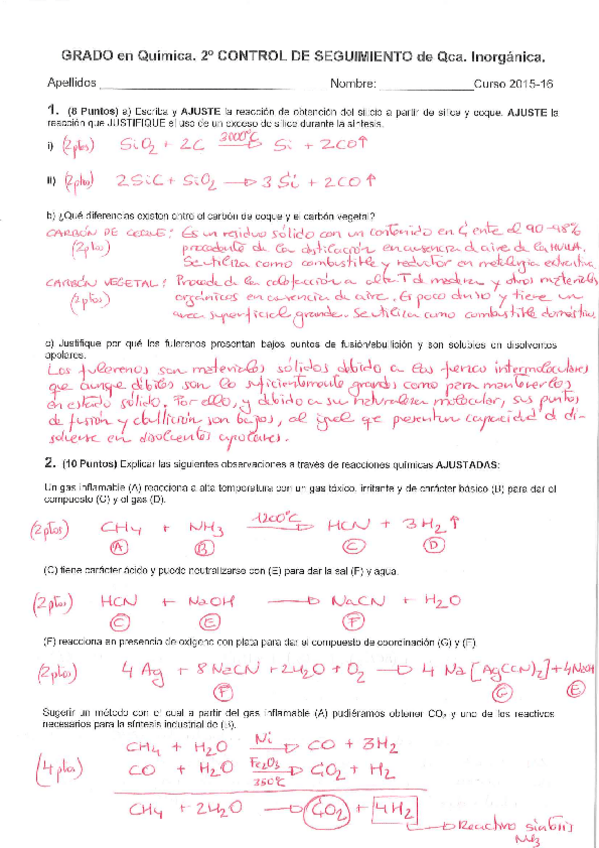 GRADO en Química. 2º CONTROL DE SEGUIMIENTO de Qca. Inorgánica.
Apellidos Nombre: Curso 2015-16
1. (8 Puntos) a) Escriba y AJUSTE la reacción de obtención del silicio a partir de sílice y coque. AJUSTE la
reacción que JUSTIFIQUE el uso de un exceso de sílice durante la síntesis.
i) (2ptos) SiO2 + 2C 3000ºC → Si + 2CO↑
ii) (2ptos) 2SiC + SiO2 → 3Si + 2CO↑
b) ¿Qué diferencias existen entre el carbón de coque y el carbón vegetal?
CARBÓN DE COQUE: Es un residuo sólido con un contenido en C, ente el 90-98%
(2ptos) procedente de la destilación en ausencia de aire de la HULLA.
Se utiliza como combustible y reductor en metalurgia extractiva.
CARBÓN VEGETAL: Procede de la calefacción a alta T de madera y otros materiales
(2ptos) orgánicos en ausencia de aire. Es poco denso y tiene un
area superficial grande. Se utiliza como combustible doméstico.
c) Justifique por qué los fulerenos presentan bajos puntos de fusión/ebullición y son solubles en disolventes
apolares.
Los fulerenos son materiales sólidos debido a las fuerzas intermoleculares
que aunque débiles son lo suficientemente grandes como para mantenerlos
en estado sólido. Por ello, y debido a su naturaleza molecular, sus puntos
de fusión y ebullición son bajos, al igual que presentan capacidad d di-
solverse en disolventes apolares.
2. (10 Puntos) Explicar las siguientes observaciones a través de reacciones químicas AJUSTADAS:
Un gas inflamable (A) reacciona a alta temperatura con un gas tóxico, irritante y de carácter básico (B) para dar el
compuesto (C) y el gas (D).
(2ptos) CH4 + NH3 1200ºC → HCN + 3H2↑
A B C D
(C) tiene carácter ácido y puede neutralizarse con (E) para dar la sal (F) y agua.
(2ptos) HCN + NaOH → NaCN + H2O
C E F
(F) reacciona en presencia de oxígeno con plata para dar el compuesto de coordinación (G) y (E).
(2ptos) 4Ag + 8NaCN + 2H2O + O2 → 4Na[Ag(CN)2] + 4NaOH
F G E
Sugerir un método con el cual a partir del gas inflamable (A) pudiéramos obtener CO2 y uno de los reactivos
necesarios para la síntesis industrial de (B).
CH4 + H2O Ni → CO + 3H2
(4ptos) CO + H2O Fe2O3 350ºC → CO2 + H2
CH4 + 2H2O → CO2 + 4H2
→ Reactivo síntesis
NH3